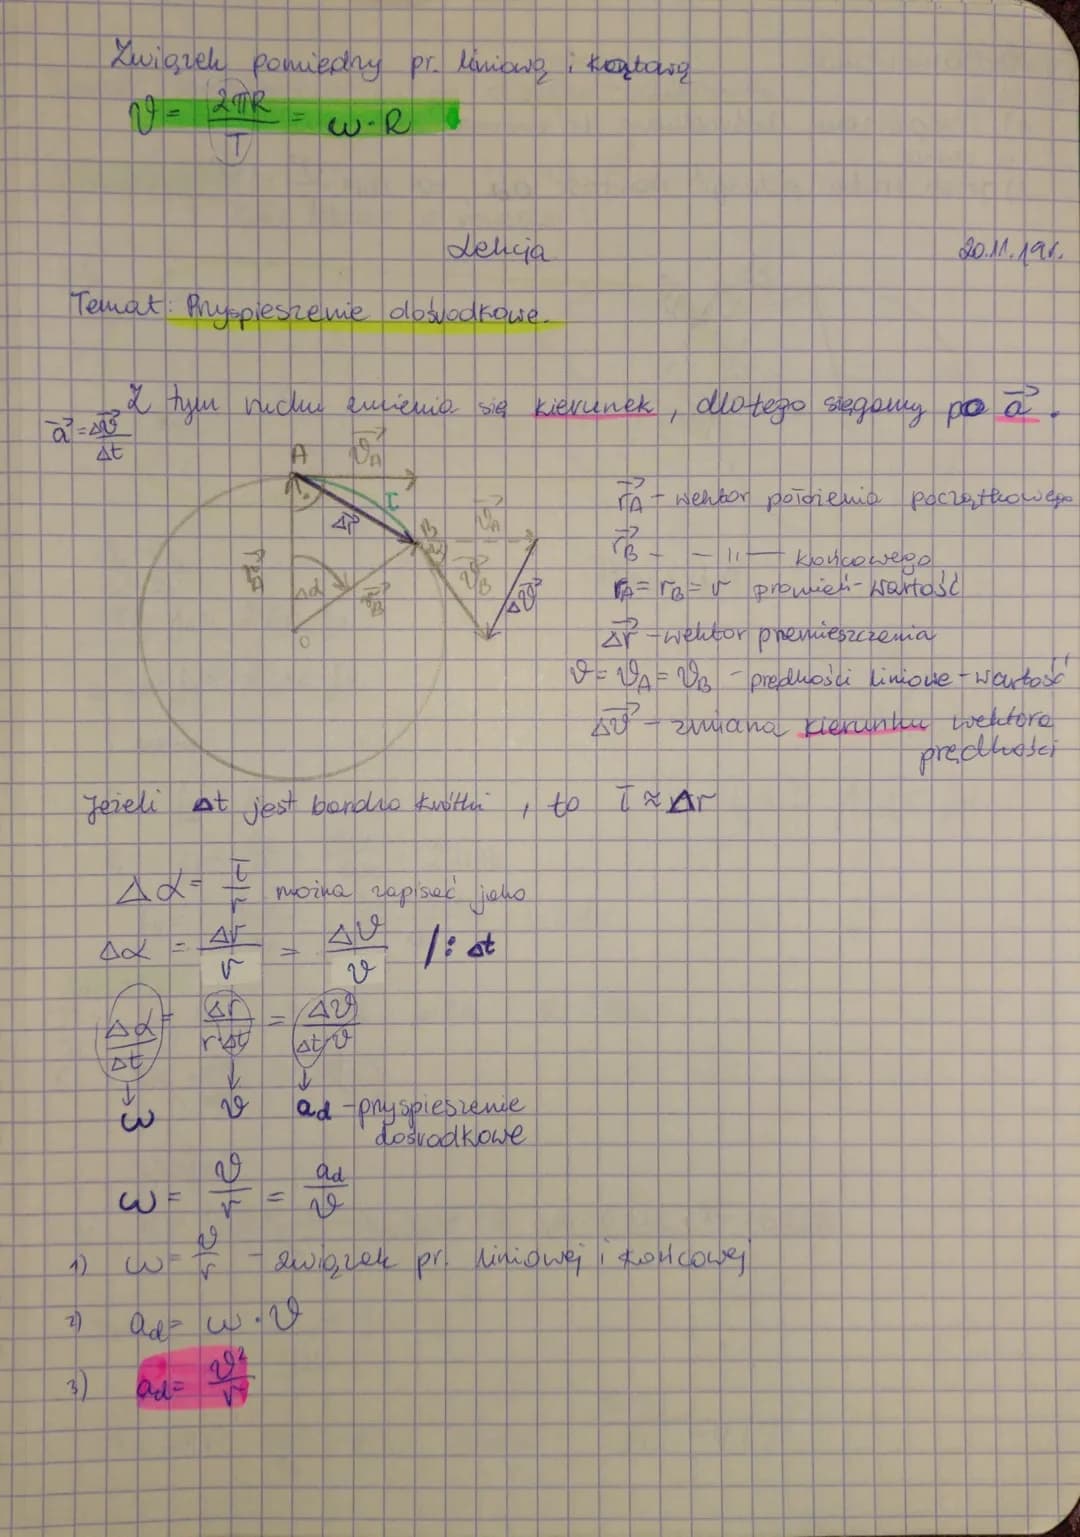 Związek pomiędzy pr. liniową i kątową
v = 2πR/T = ω·R
Lekcja 20.11.19r.
Temat: Przyspieszenie dośrodkowe.
Z tym ruchu zmienia się kierunek, dlatego sięgamy po a⃗.
a⃗ = Δv⃗/Δt
A v⃗A
l
Δr⃗ B v⃗A
v⃗B Δv⃗
Δα r⃗B
O
r⃗A - wektor położenia początkowego
r⃗B - —||— końcowego
rA = rB = r promień - wartość
Δr⃗ - wektor przemieszczenia
v = vA = vB - prędkości liniowe - wartość
Δv⃗ - zmiana kierunku wektora
prędkości
Jeżeli Δt jest bardzo krótki, to l ≈ Δr
Δα = l/r można zapisać jako
Δα = Δr/r = Δv/v /: Δt
Δα/Δt = Δr/r·Δt = Δv/Δt·v
↓ ↓ ↓
ω v ad - przyspieszenie
dośrodkowe
ω = v/r = ad/v
1) ω = v/r - związek pr. liniowej i końcowej
2) ad = ω·v
3) ad = v²/r